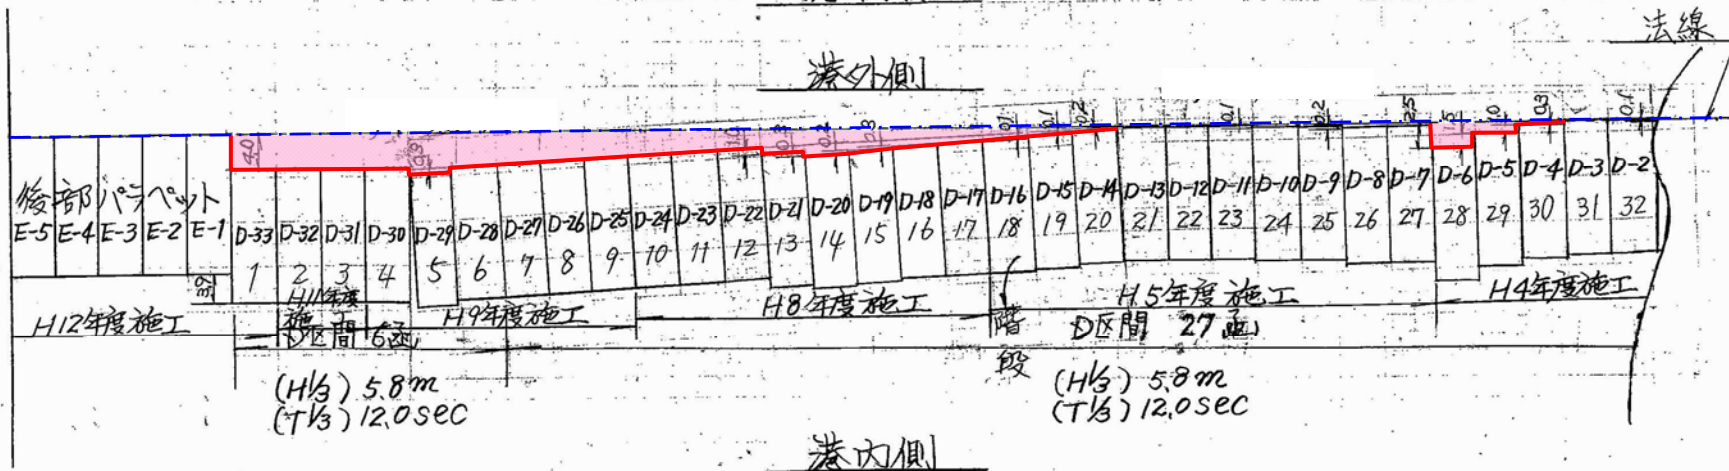 法線
港外側
4.0 0.3 0.2 0.3 0.1 0.1 0.2 0.1 0.2 2.5 1.5 1.0 0.3 0.1
後部パラペット
E-5 E-4 E-3 E-2 E-1 D-33 D-32 D-31 D-30 D-29 D-28 D-27 D-26 D-25 D-24 D-23 D-22 D-21 D-20 D-19 D-18 D-17 D-16 D-15 D-14 D-13 D-12 D-11 D-10 D-9 D-8 D-7 D-6 D-5 D-4 D-3 D-2
1 2 3 4 5 6 7 8 9 10 11 12 13 14 15 16 17 18 19 20 21 22 23 24 25 26 27 28 29 30 31 32
3.9
H12年度施工
H11年度
施工
H9年度施工
H8年度施工
H.5年度施工
H4年度施工
D区間 6函
階段
D区間 27函
(H1/3) 5.8m
(T1/3) 12.0sec
(H1/3) 5.8m
(T1/3) 12.0sec
港内側